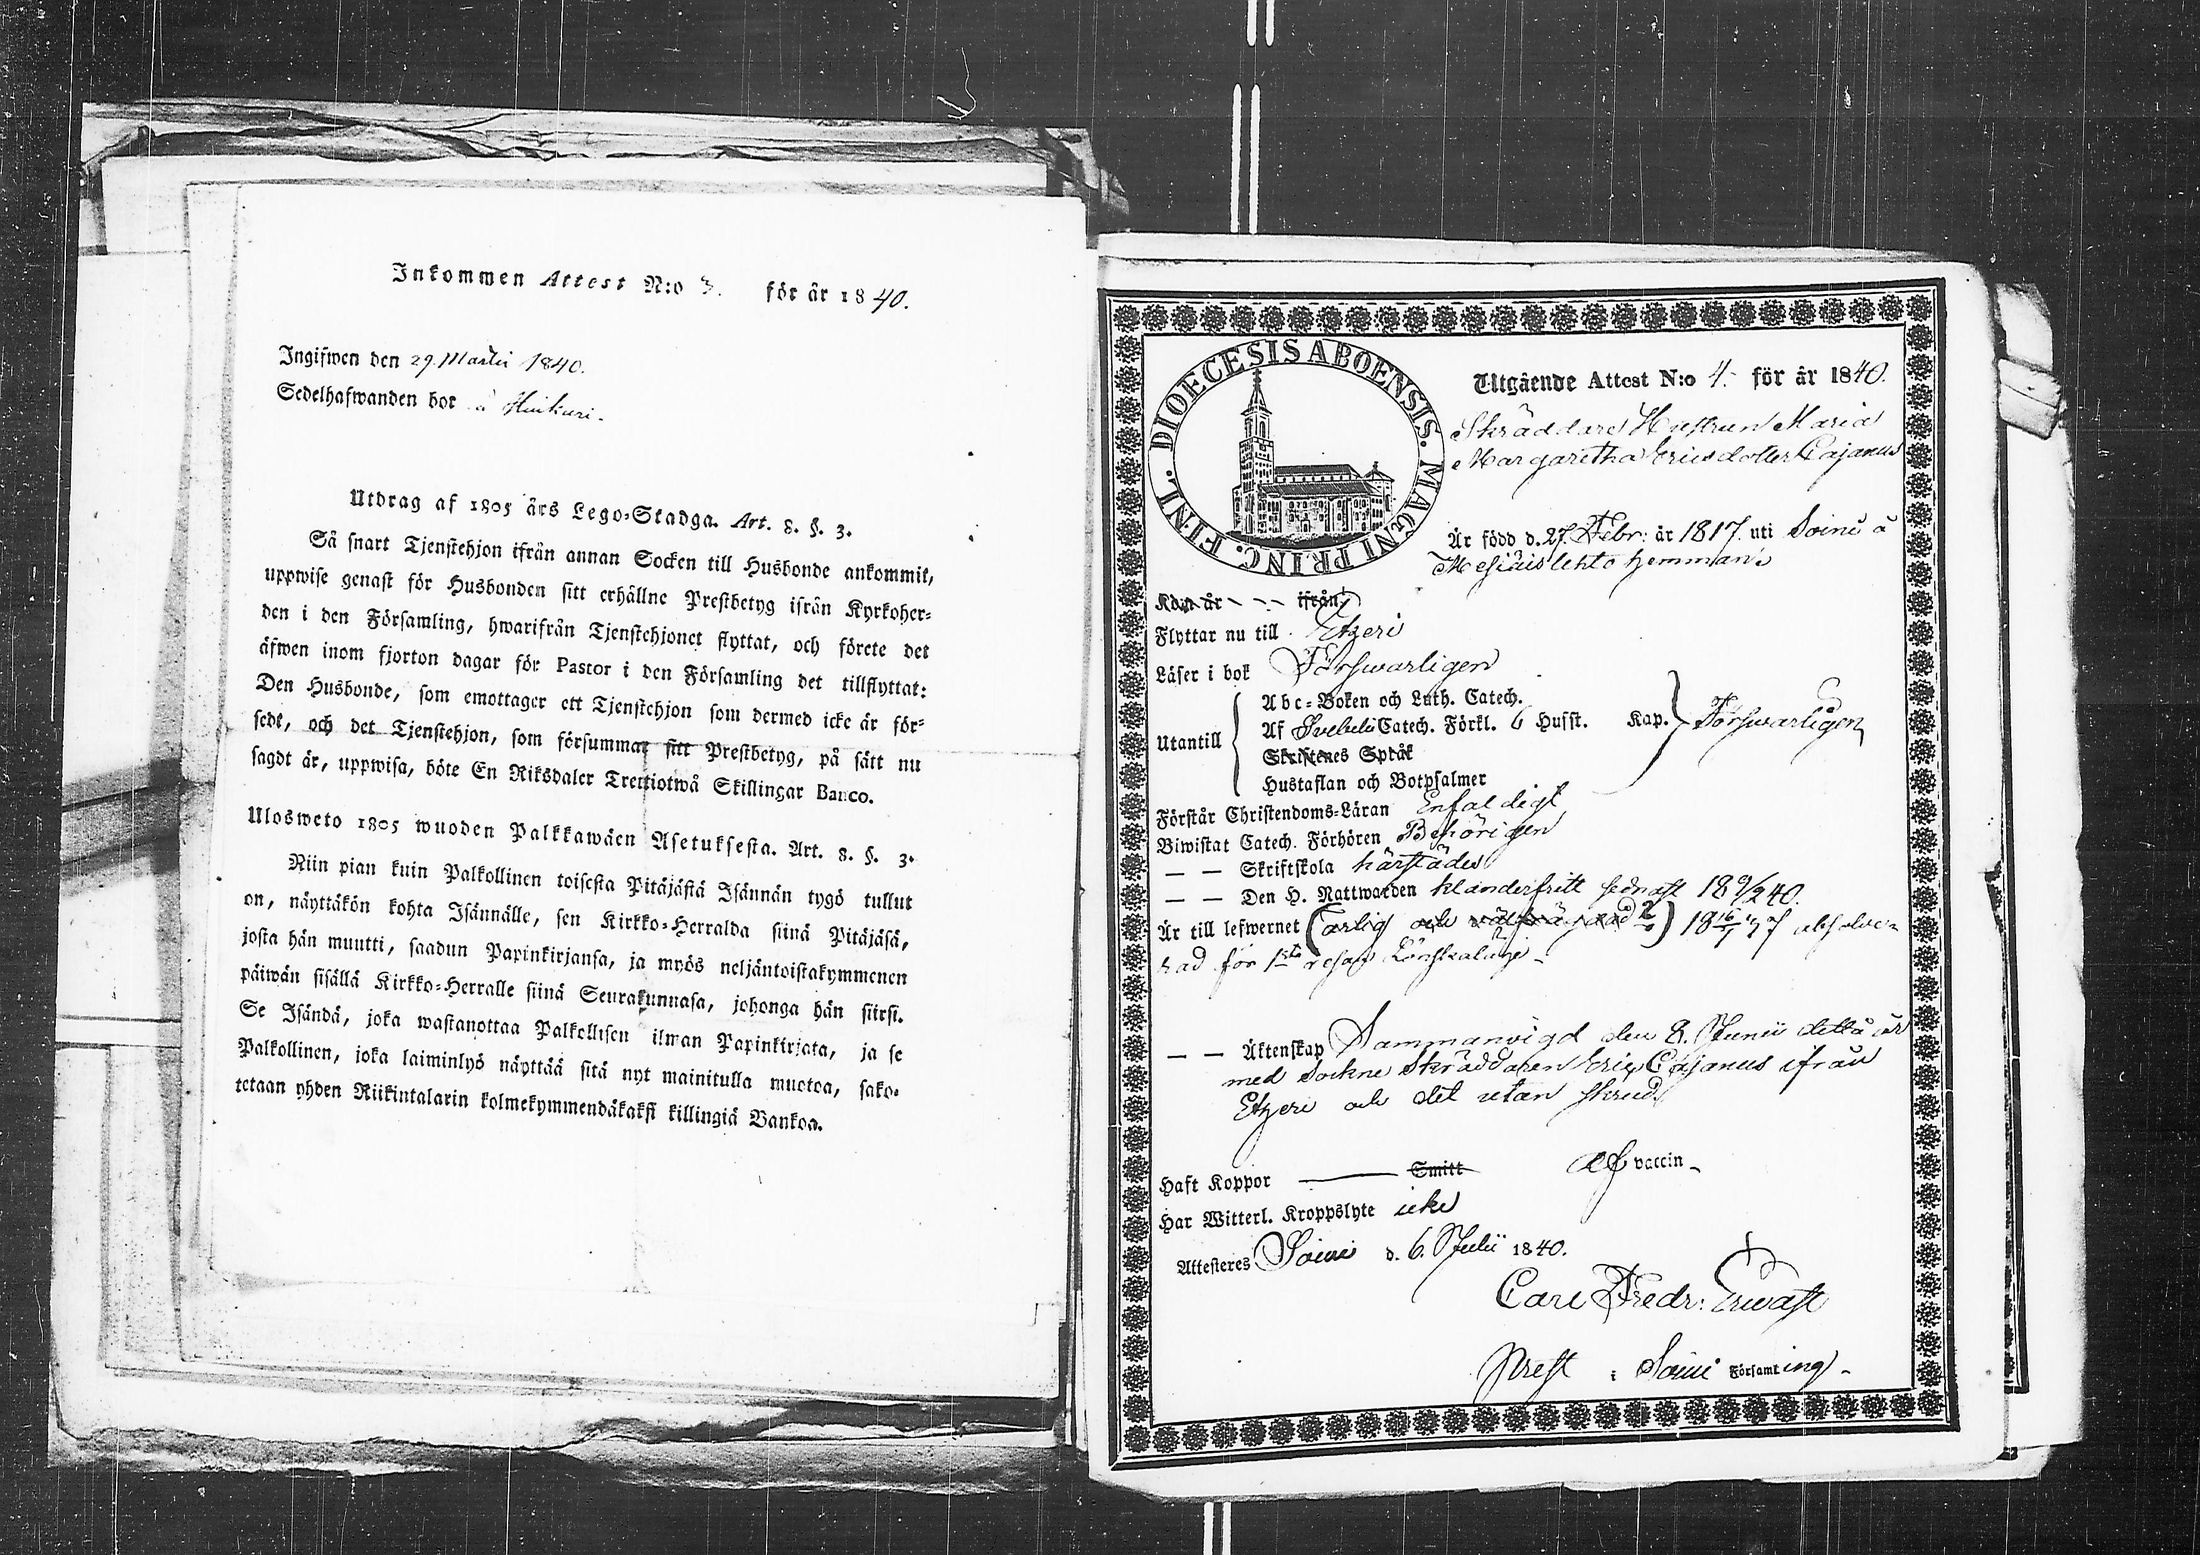 Inkommen Attest N:o 3. för år 1840.
Ingifwen den 29 Martii 1840.
Sedelhafwanden bor à Huikuri.
Utdrag af 1805 års Lego-Stadga. Art. 8. §. 3.
Så snart Tjenstehjon ifrån annan Socken till Husbonde ankommit,
uppwise genast för Husbonden sitt erhållne Prestbetyg ifrån Kyrkoher-
den i den Församling, hwarifrån Tjenstehjonet flyttat, och förete det
äfwen inom fjorton dagar för Pastor i den Församling det tillflyttat:
Den Husbonde, som emottager ett Tjenstehjon som dermed icke är för-
sedt, och det Tjenstehjon, som försummar sitt Prestbetyg, på sätt nu
sagdt är, uppwisa, böte En Riksdaler Trettiotwå Skillingar Banco.
Ulosweto 1805 wuoden Palkkawäen Asetuksesta. Art. 8. §. 3.
Niin pian kuin Palkollinen toisesta Pitäjästä Isännän tygö tullut
on, näyttäkön kohta Isännälle, sen Kirkko-Herralda siinä Pitäjäsä,
josta hän muutti, saadun Papinkirjansa, ja myös neljäntoistakymmenen
päiwän sisällä Kirkko-Herralle siinä Seurakunnasa, johonga hän siirsi.
Se Isändä, joka wastanottaa Palkollisen ilman Papinkirjata, ja se
Palkollinen, joka laiminlyö näyttää sitä nyt mainitulla muotoa, sako-
tetaan yhden Riikintalarin kolmekymmendäkaksi killingiä Bankoa.
DIOECESIS ABOENSIS. MAGNI PRINC. FINL.
Utgående Attest N:o 4. för år 1840.
Skräddare Hustrun Maria
Margaretha Ericsdotter Cajanus
Är född d. 27. Febr: år 1817. uti Soini å
hemman
Kom år - - - ifrån
Flyttar nu till Etzeri
Läser i bok Förswarligen
Utantill
Abc-Boken och Luth. Catech.
Af Svebelii Catech. Förkl. 6 Husst. Kap. Förswarligen
Skriftenes Språk
Hustaflan och Botpsalmer
Förstår Christendoms-Läran Enfaldigt
Biwistat Catech. Förhören Behörigen
— — Skriftskola härstädes
— — Den H. Nattwarden klanderfritt sednast 18 9/2 40.
Är till lefwernet (ärlig och välfrägdad) 18 37 absolve-
rad för 1sta resan Lönskaläge -
— — Äktenskap Sammanvigd den 8. Junii detta år
med Sockne Skräddaren Eric Cajanus ifrån
Etzeri och det utan skrud.
Haft Koppor ——— Smitt af vaccin -
Har Witterl. Kroppslyte icke
Attesteres Soini d. 6. Julii 1840.
Carl Fredr: Erwast
Prest i Soini Församling -